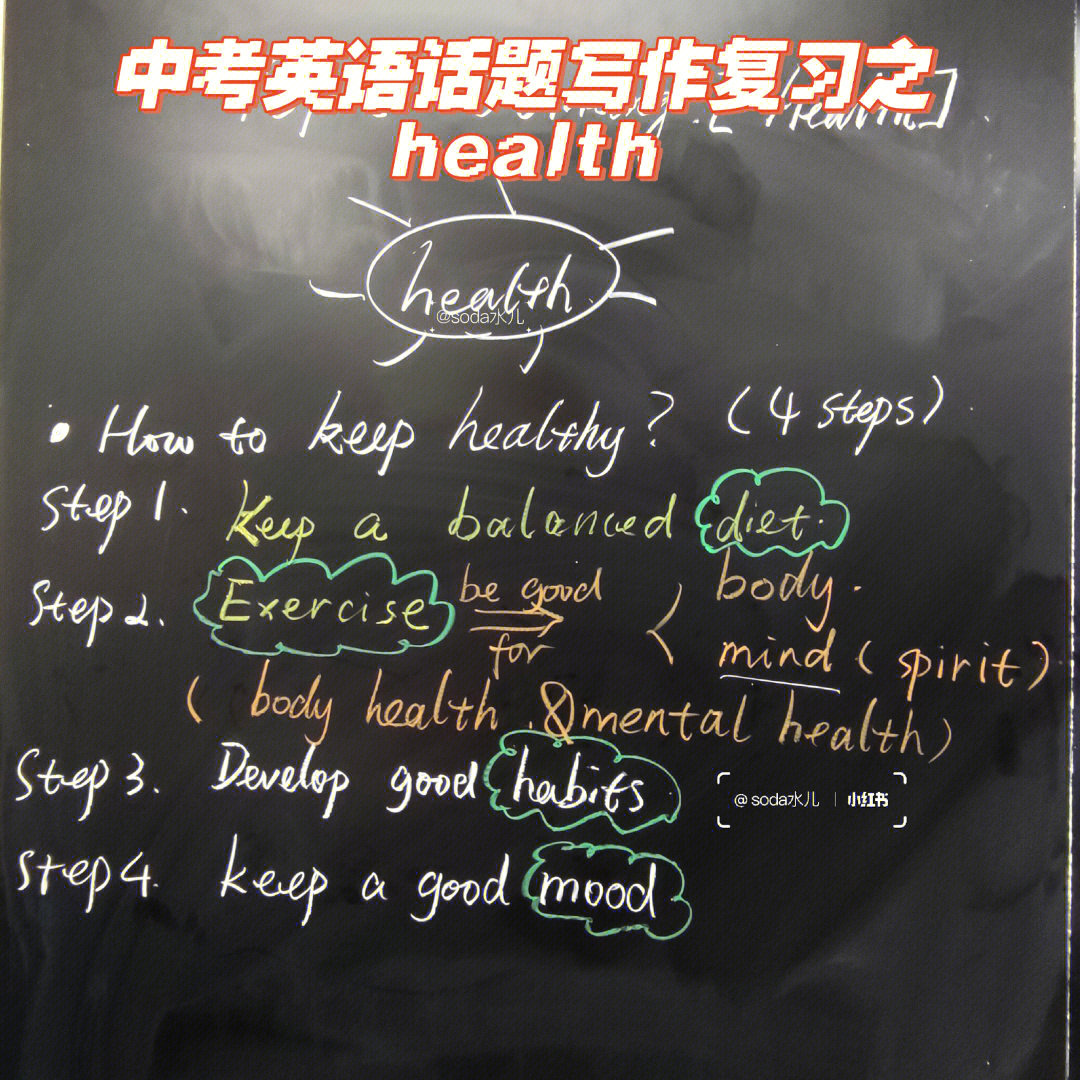 中考英语话题写作复习之
health
health
@soda水儿
• How to keep healthy? (4 steps).
Step 1. Keep a balanced diet.
Step 2. Exercise be good for body.
mind (spirit)
(body health & mental health)
Step 3. Develop good habits
@soda水儿 | 小红书
Step 4. keep a good mood